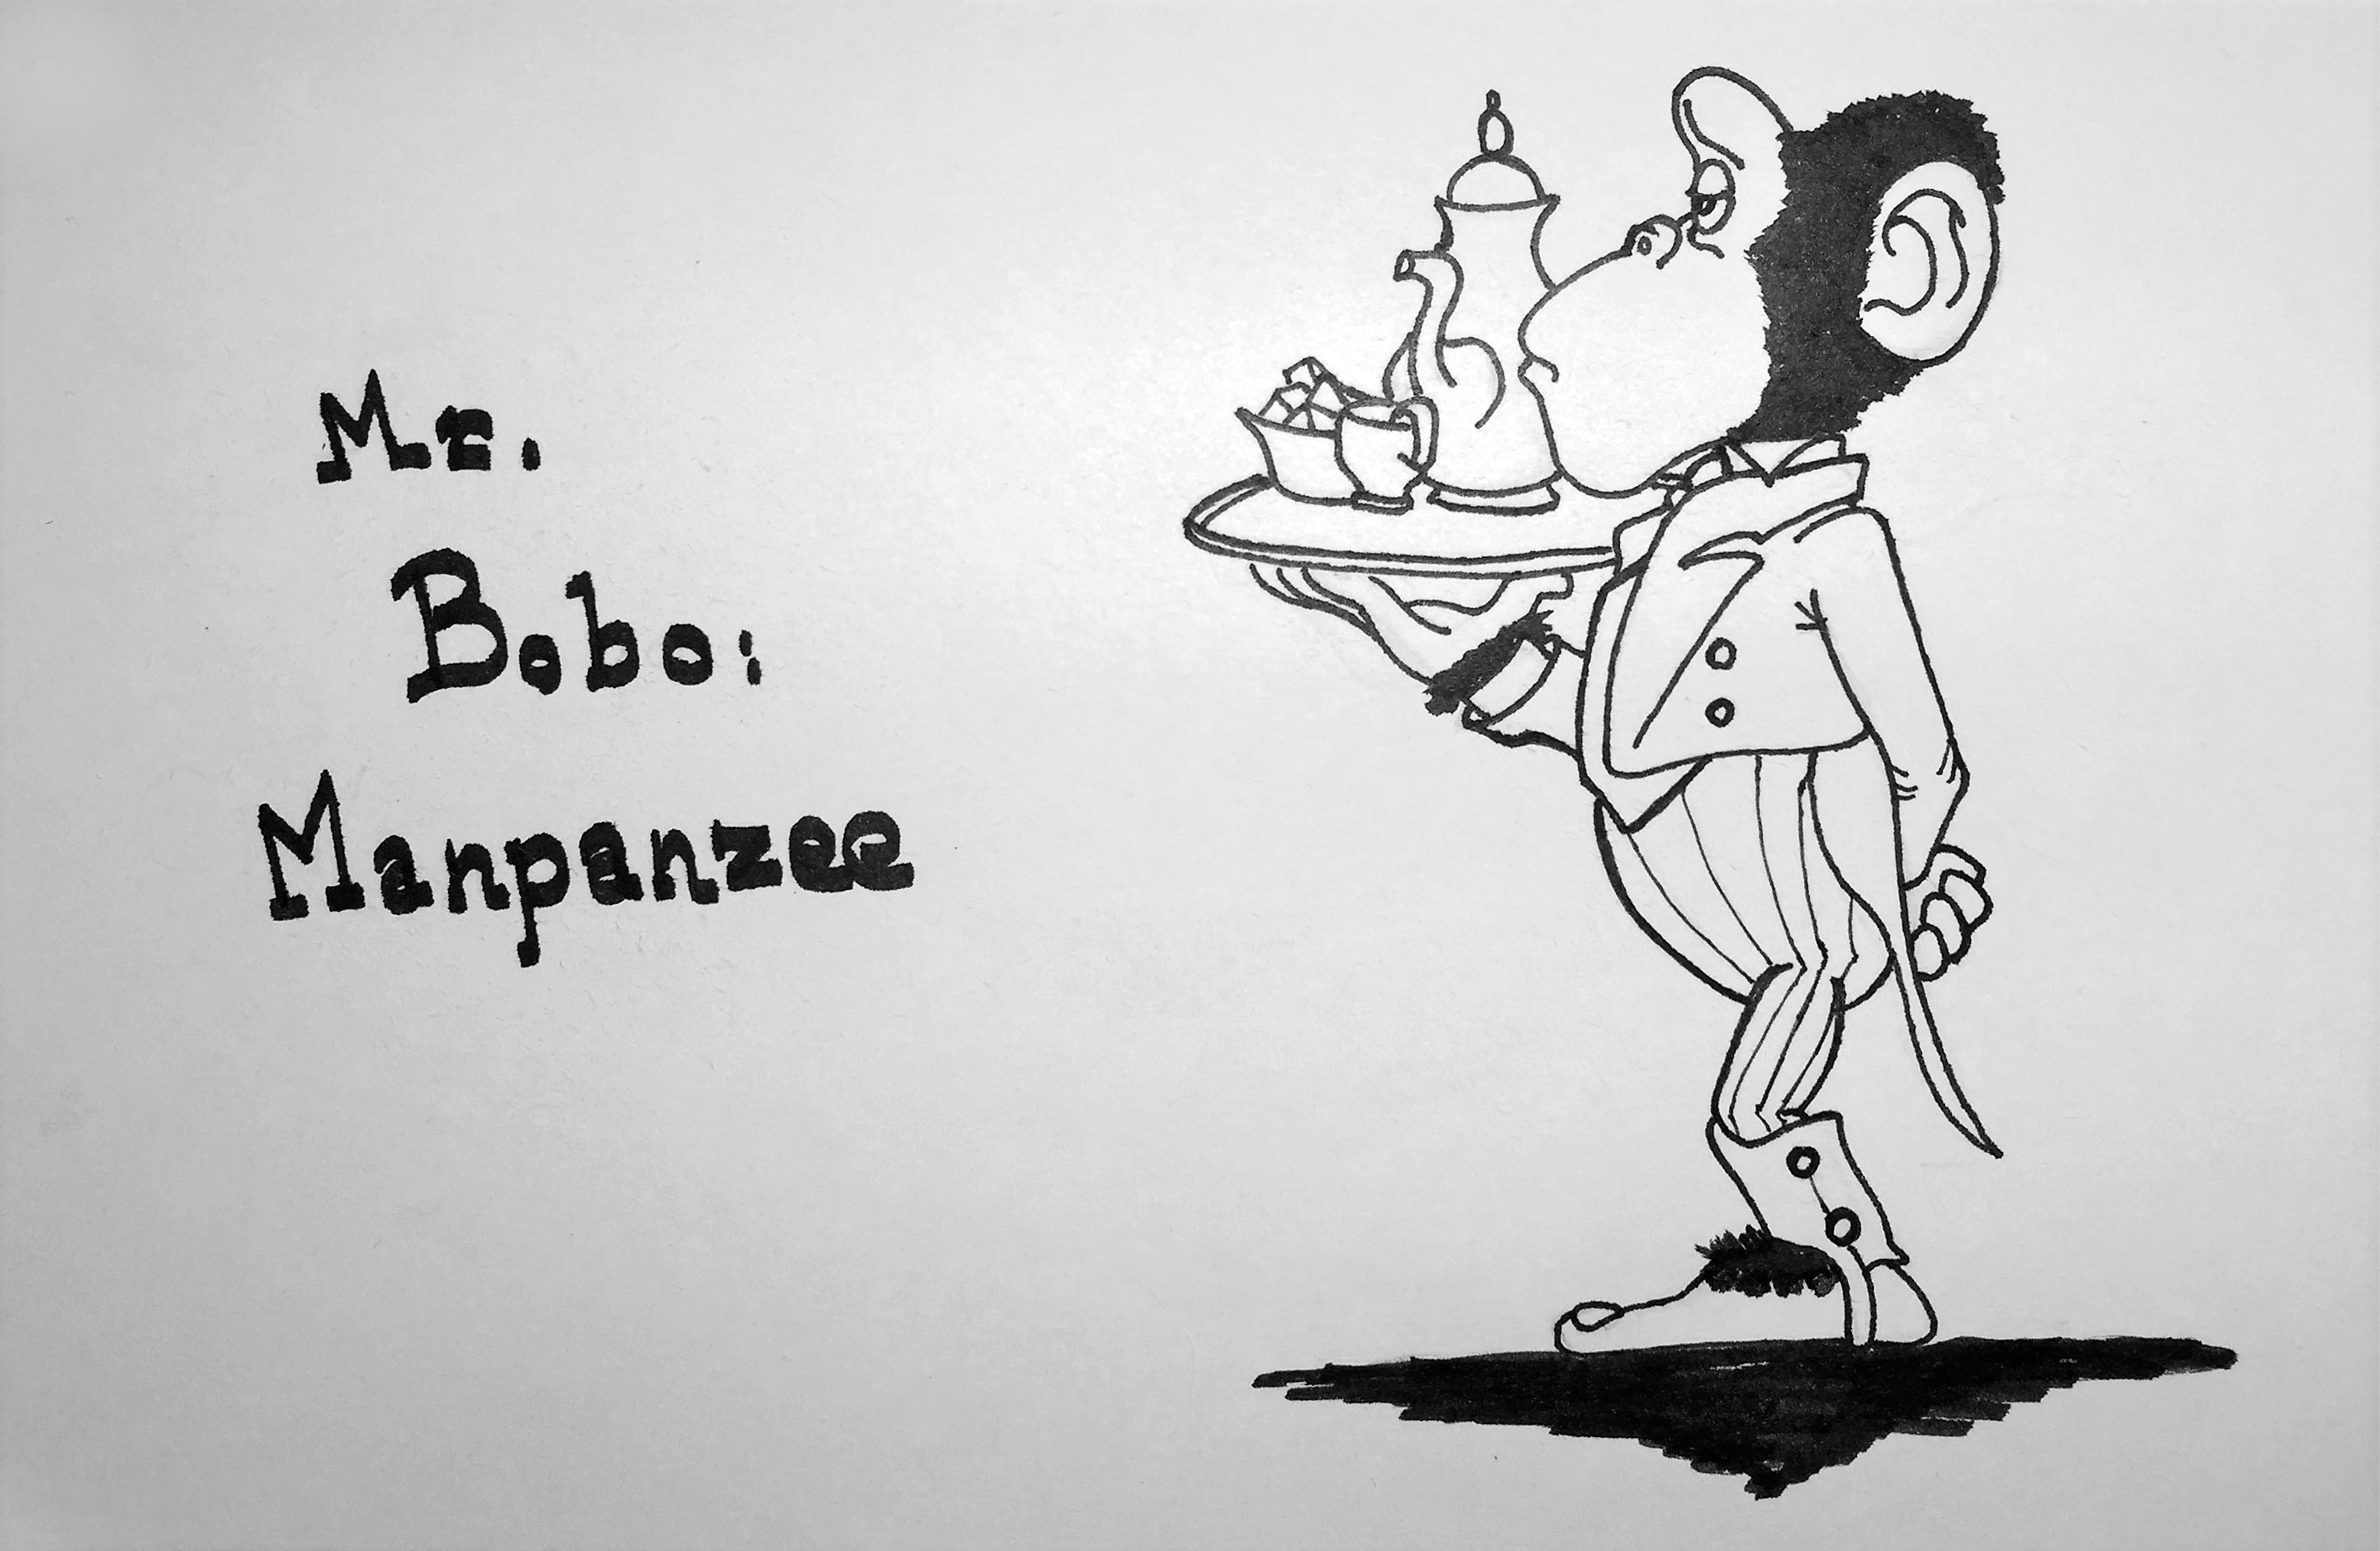 Mr.
Bobo:
Manpanzee